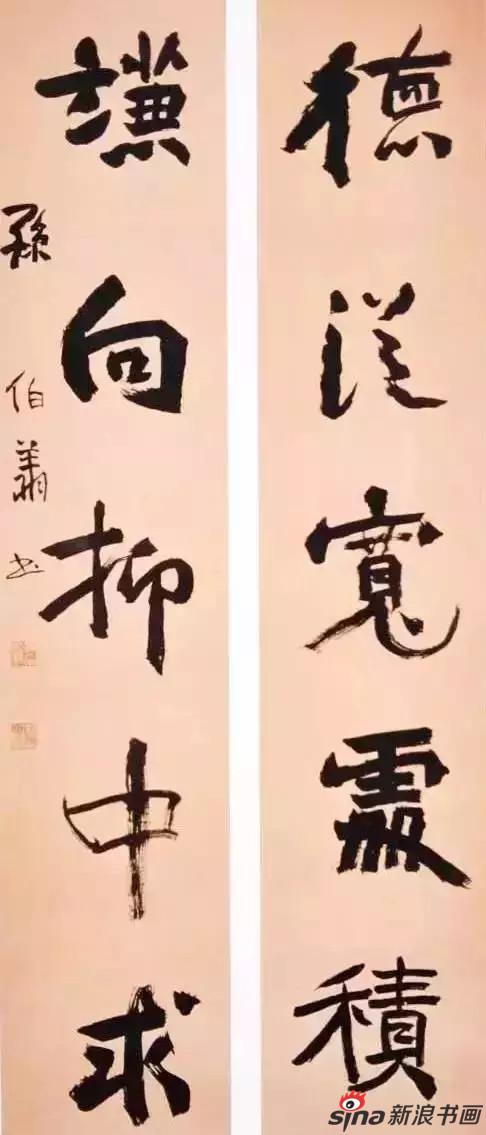 德從寬處積
謙向抑中求
孫伯翔书
sina新浪书画